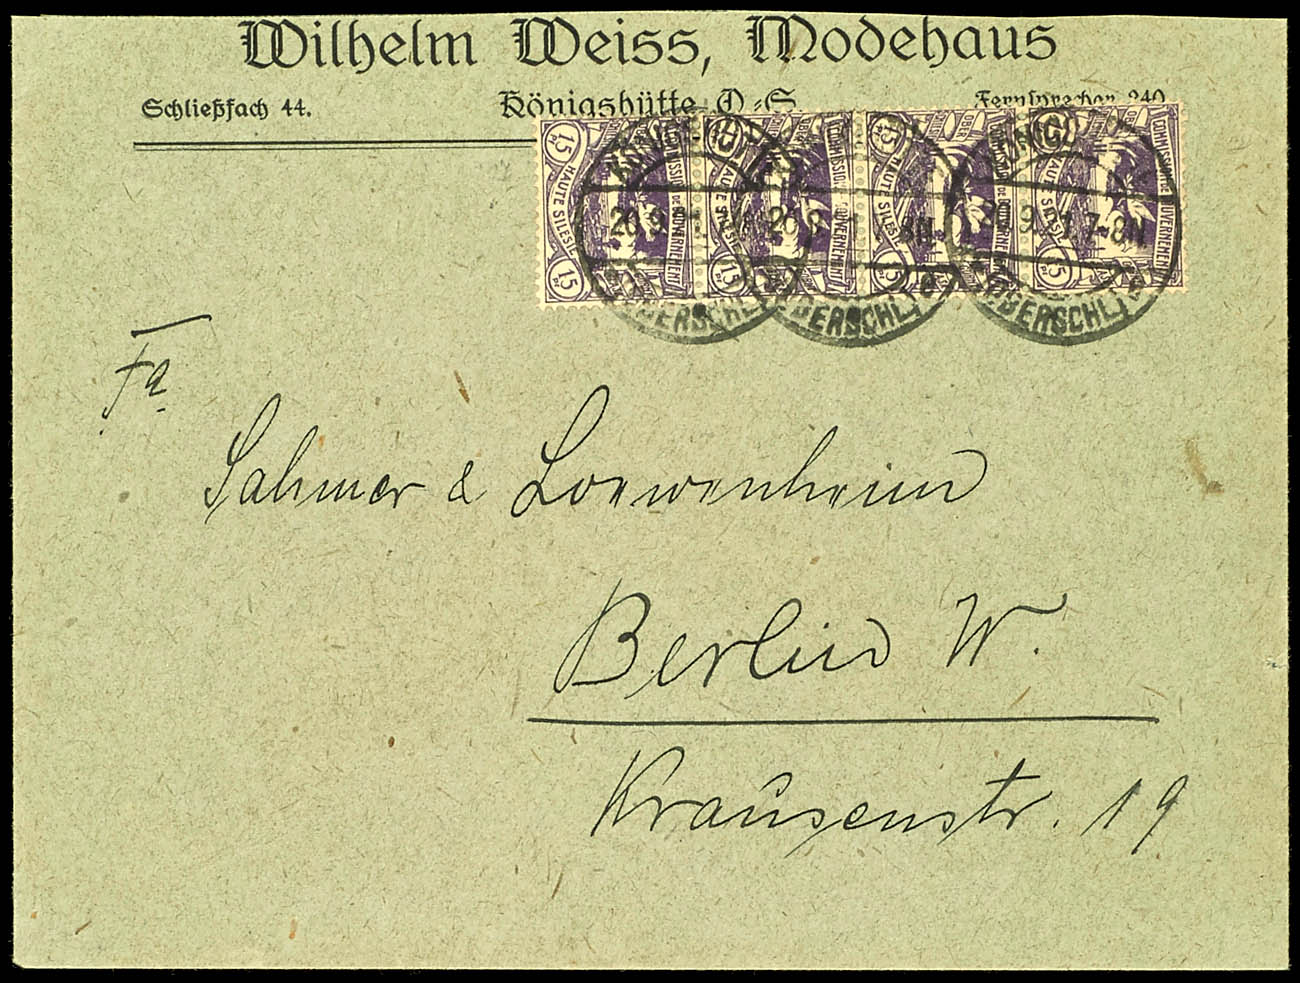 Wilhelm Weiss, Modehaus
Schließfach 44. Königshütte O=S. Fernsprecher 240
15 HAUTE SILESIE 15 COMMISSION DE GOUVERNEMENT
15 HAUTE SILESIE 15 COMMISSION DE GOUVERNEMENT
15 HAUTE SILESIE 15 COMMISSION DE GOUVERNEMENT
15 HAUTE SILESIE 15 COMMISSION DE GOUVERNEMENT
20.9. 20.9. 20.9.21.7-8N
OBERSCHL. OBERSCHL. OBERSCHL.
Fa.
Sahmer & Loewenheim
Berlin W.
Krausenstr. 19